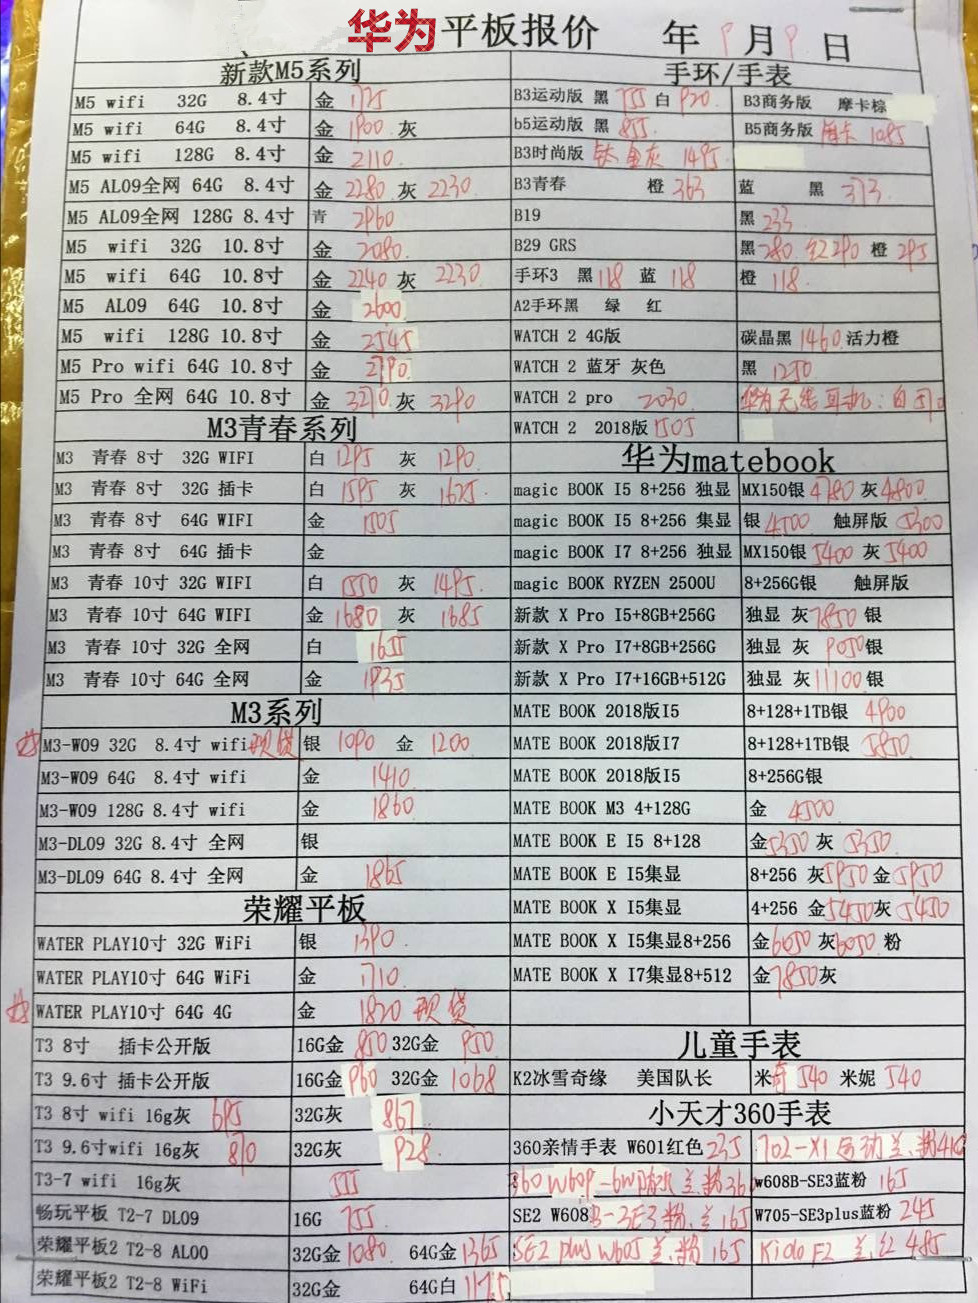 华为 平板报价 年 9 月 9 日
新款M5系列
M5 wifi 32G 8.4寸 金 1725
M5 wifi 64G 8.4寸 金 1900 灰
M5 wifi 128G 8.4寸 金 2110
M5 AL09全网 64G 8.4寸 金 2280 灰 2230
M5 AL09全网 128G 8.4寸 青 2960
M5 wifi 32G 10.8寸 金 2080
M5 wifi 64G 10.8寸 金 2240 灰 2230
M5 AL09 64G 10.8寸 金 2600
M5 wifi 128G 10.8寸 金 2545
M5 Pro wifi 64G 10.8寸 金 2790
M5 Pro 全网 64G 10.8寸 金 3270 灰 3290
M3青春系列
M3 青春 8寸 32G WIFI 白 1295 灰 1290
M3 青春 8寸 32G 插卡 白 1595 灰 1625
M3 青春 8寸 64G WIFI 金 1505
M3 青春 8寸 64G 插卡 金
M3 青春 10寸 32G WIFI 白 1550 灰 1495
M3 青春 10寸 64G WIFI 金 1680 灰 1685
M3 青春 10寸 32G 全网 白 1655
M3 青春 10寸 64G 全网 金 1935
M3系列
M3-W09 32G 8.4寸 wifi 现货 银 1090 金 1200
M3-W09 64G 8.4寸 wifi 金 1410
M3-W09 128G 8.4寸 wifi 金 1860
M3-DL09 32G 8.4寸 全网 银
M3-DL09 64G 8.4寸 全网 金 1865
荣耀平板
WATER PLAY10寸 32G WiFi 银 1390
WATER PLAY10寸 64G WiFi 金 1710
WATER PLAY10寸 64G 4G 金 1820 现货
T3 8寸 插卡公开版 16G金 850 32G金 950
T3 9.6寸 插卡公开版 16G金 960 32G金 1068
T3 8寸 wifi 16g灰 695 32G灰 867
T3 9.6寸wifi 16g灰 870 32G灰 928
T3-7 wifi 16g灰 555
畅玩平板 T2-7 DL09 16G 755
荣耀平板2 T2-8 AL00 32G金 1080 64G金 1365
荣耀平板2 T2-8 WiFi 32G金 64G白 1175
手环/手表
B3运动版 黑 755 白 920 B3商务版 摩卡棕
b5运动版 黑 855 B5商务版 摩卡 1085
B3时尚版 钛金灰 1495
B3青春 橙 363 蓝 黑 373
B19 黑 233
B29 GRS 黑 280 红 290 橙 295
手环3 黑 118 蓝 118 橙 118
A2手环黑 绿 红
WATCH 2 4G版 碳晶黑 1460 活力橙
WATCH 2 蓝牙 灰色 黑 1250
WATCH 2 pro 2030 华为无线耳机:白
WATCH 2 2018版 1505
华为matebook
magic BOOK I5 8+256 独显 MX150银 4780 灰 4800
magic BOOK I5 8+256 集显 银 4500 触屏版 5300
magic BOOK I7 8+256 独显 MX150银 5400 灰 5400
magic BOOK RYZEN 2500U 8+256G银 触屏版
新款 X Pro I5+8GB+256G 独显 灰 7850 银
新款 X Pro I7+8GB+256G 独显 灰 9050 银
新款 X Pro I7+16GB+512G 独显 灰 11100 银
MATE BOOK 2018版I5 8+128+1TB银 4900
MATE BOOK 2018版I7 8+128+1TB银 5850
MATE BOOK 2018版I5 8+256G银
MATE BOOK M3 4+128G 金 4500
MATE BOOK E I5 8+128 金 5350 灰 5350
MATE BOOK E I5集显 8+256 灰 5950 金 5950
MATE BOOK X I5集显 4+256 金 5450 灰 5450
MATE BOOK X I5集显8+256 金 6050 灰 6050 粉
MATE BOOK X I7集显8+512 金 7850 灰
儿童手表
K2冰雪奇缘 美国队长 米奇 540 米妮 540
小天才360手表
360亲情手表 W601红色 235 702-X1 运动 兰.粉 410
360 W609-6W防水 兰.粉 w608B-SE3蓝粉 165
SE2 W608 B-3E3 粉.兰 165 W705-SE3plus蓝粉 245
SE2 plus W605 兰.粉 165 Kido F2 兰.红 485